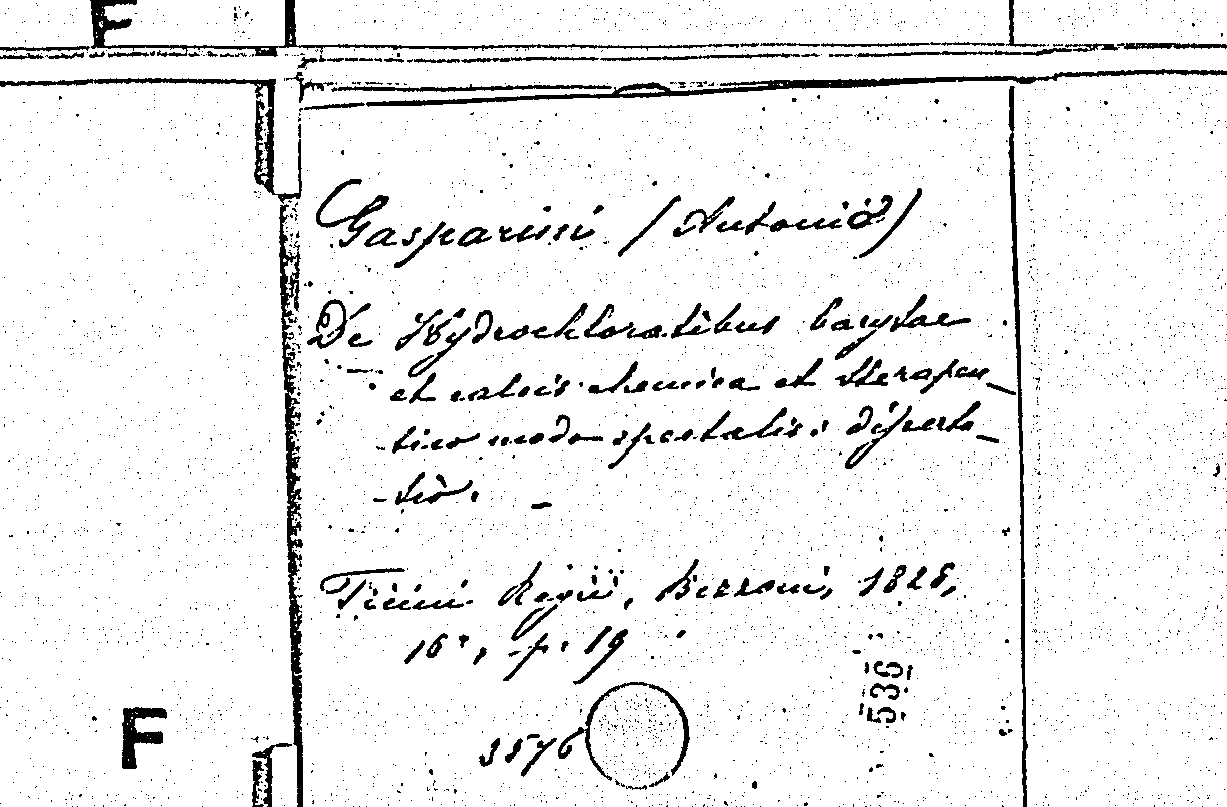 F
Gasparini (Antonio)
De Hydrochloratibus barytae
et calcis chemica et therapeu-
tico modo spectatis: disserta-
-tio. -
Ticini Regii, Bizzoni, 1828,
16°, p. 19
536
F
3576